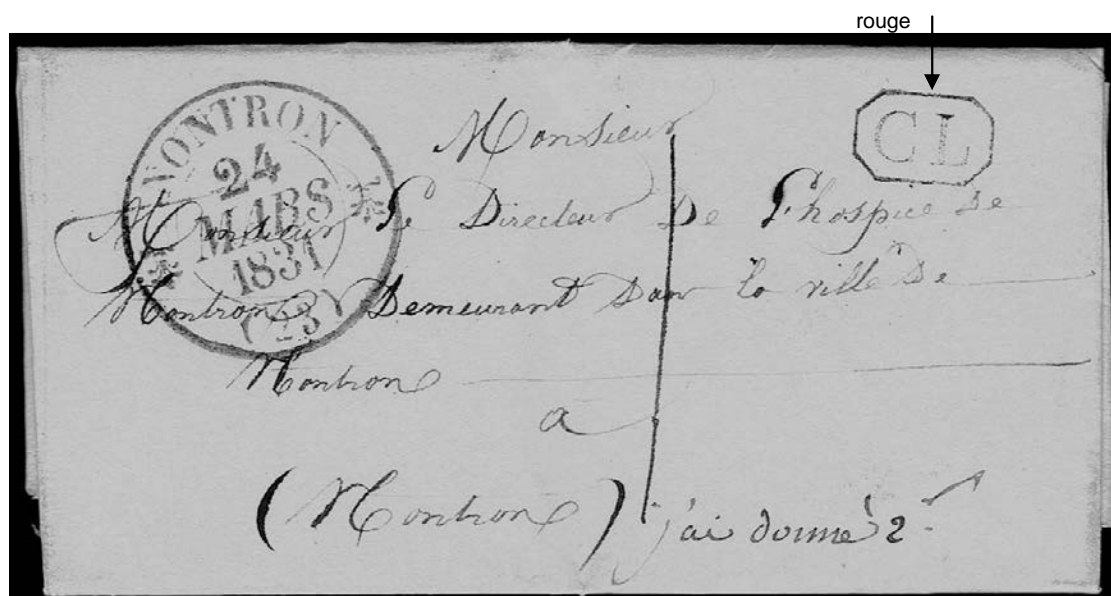 rouge
NONTRON
24
MARS
1831
(23)
CL
Monsieur
Monsieur Le Directeur De L'hospice De
Nontron Demeurant Dans la ville De
Nontron
a
(Nontron) j'ai donné 2
1